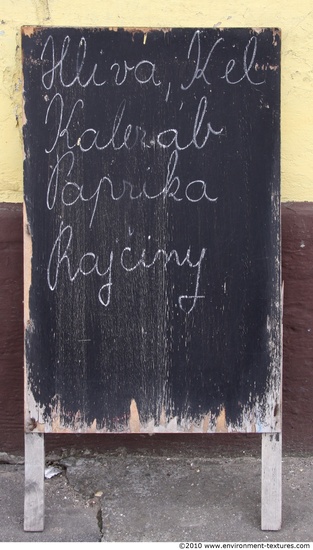 Hliva, Kel
Kaleráb
Paprika
Rajčiny
©2010 www.environment-textures.com